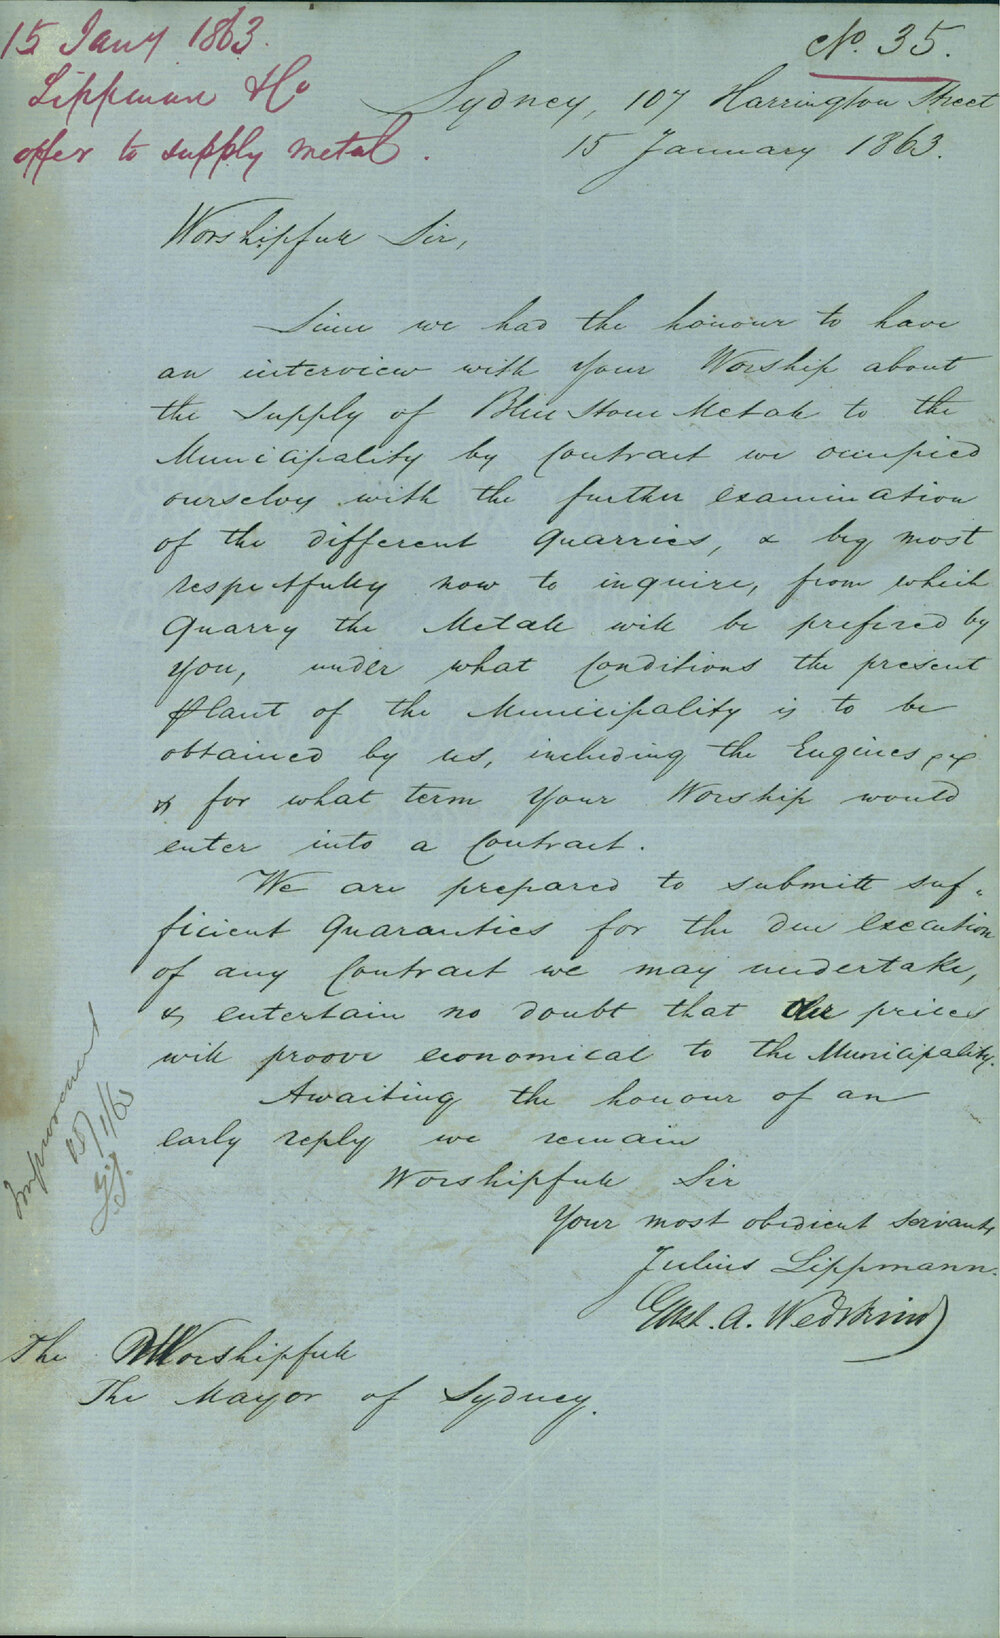 15 Jany 1863.
Lippman & Co
offer to supply metal.
No. 35.
Sydney, 107 Harrington Street
15 January 1863.
Worshipfull Sir,
Since we had the honour to have
an interview with Your Worship about
the supply of Blue Stone Metall to the
Municipality by Contract we occupied
ourselvs with the further examination
of the different Quarries, & beg most
respectfully now to inquire, from which
Quarry the Metall will be prefered by
you, under what Conditions the present
Plant of the Municipality is to be
obtained by us, including the Engines
& for what term Your Worship would
enter into a Contract.
We are prepared to submitt suf-
ficient Guaranties for the due execution
of any Contract we may undertake,
& entertain no doubt that our prices
will proove economical to the Municipality.
Awaiting the honour of an
early reply we remain
Worshipfull Sir
Your most obedient servants
Julius Lippmann.
Gust. A. Wedekind
The Worshipfull
The Mayor of Sydney.
Improvement
/1/63